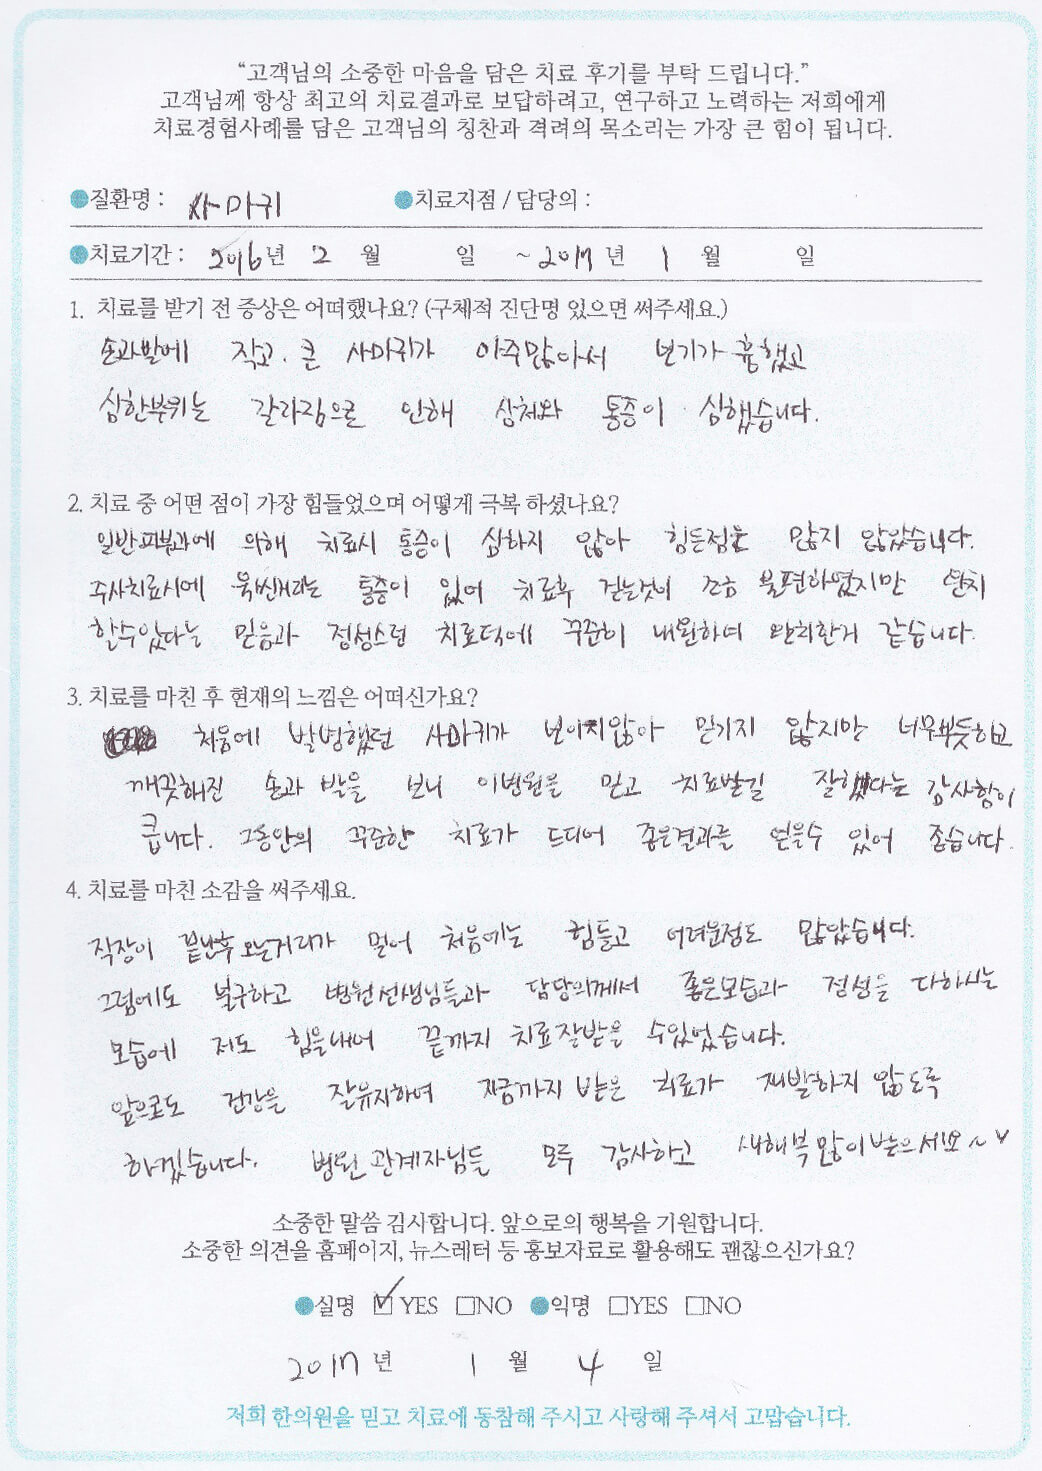 “고객님의 소중한 마음을 담은 치료 후기를 부탁 드립니다.”
고객님께 항상 최고의 치료결과로 보답하려고, 연구하고 노력하는 저희에게
치료경험사례를 담은 고객님의 칭찬과 격려의 목소리는 가장 큰 힘이 됩니다.
●질환명 : 사마귀 ●치료지점 / 담당의 :
●치료기간 : 2016년 2 월 일 ~ 2017 년 1 월 일
1. 치료를 받기 전 증상은 어떠했나요? (구체적 진단명 있으면 써주세요.)
손과발에 작고. 큰 사마귀가 아주많아서 보기가 흉했고
심한부위는 갈라짐으로 인해 상처와 통증이 심했습니다.
2. 치료 중 어떤 점이 가장 힘들었으며 어떻게 극복 하셨나요?
일반피부과에 의해 치료시 통증이 심하지 않아 힘든점은 많지 않았습니다.
주사치료시에 욱씬거리는 통증이 있어 치료후 걷는것이 조금 불편하였지만 완치
할수있다는 믿음과 정성스런 치료덕에 꾸준히 내원하여 완치한거 같습니다.
3. 치료를 마친 후 현재의 느낌은 어떠신가요?
처음에 발병했던 사마귀가 보이지않아 믿기지 않지만 너무뿌듯하고
깨끗해진 손과 발을 보니 이병원을 믿고 치료받길 잘했다는 감사함이
큽니다. 그동안의 꾸준한 치료가 드디어 좋은결과를 얻을수 있어 좋습니다.
4. 치료를 마친 소감을 써주세요.
직장이 끝난후 오는거리가 멀어 처음에는 힘들고 어려운점도 많았습니다.
그럼에도 불구하고 병원선생님들과 담당의께서 좋은모습과 정성을 다하시는
모습에 저도 힘을내어 끝까지 치료잘받을 수있었습니다.
앞으로도 건강을 잘유지하여 지금까지 받은 치료가 재발하지 않도록
하겠습니다. 병원 관계자님들 모두 감사하고 새해복많이받으세요~♥
소중한 말씀 감사합니다. 앞으로의 행복을 기원합니다.
소중한 의견을 홈페이지, 뉴스레터 등 홍보자료로 활용해도 괜찮으신가요?
●실명 ☑YES □NO ●익명 □YES □NO
2017 년 1 월 4 일
저희 한의원을 믿고 치료에 동참해 주시고 사랑해 주셔서 고맙습니다.